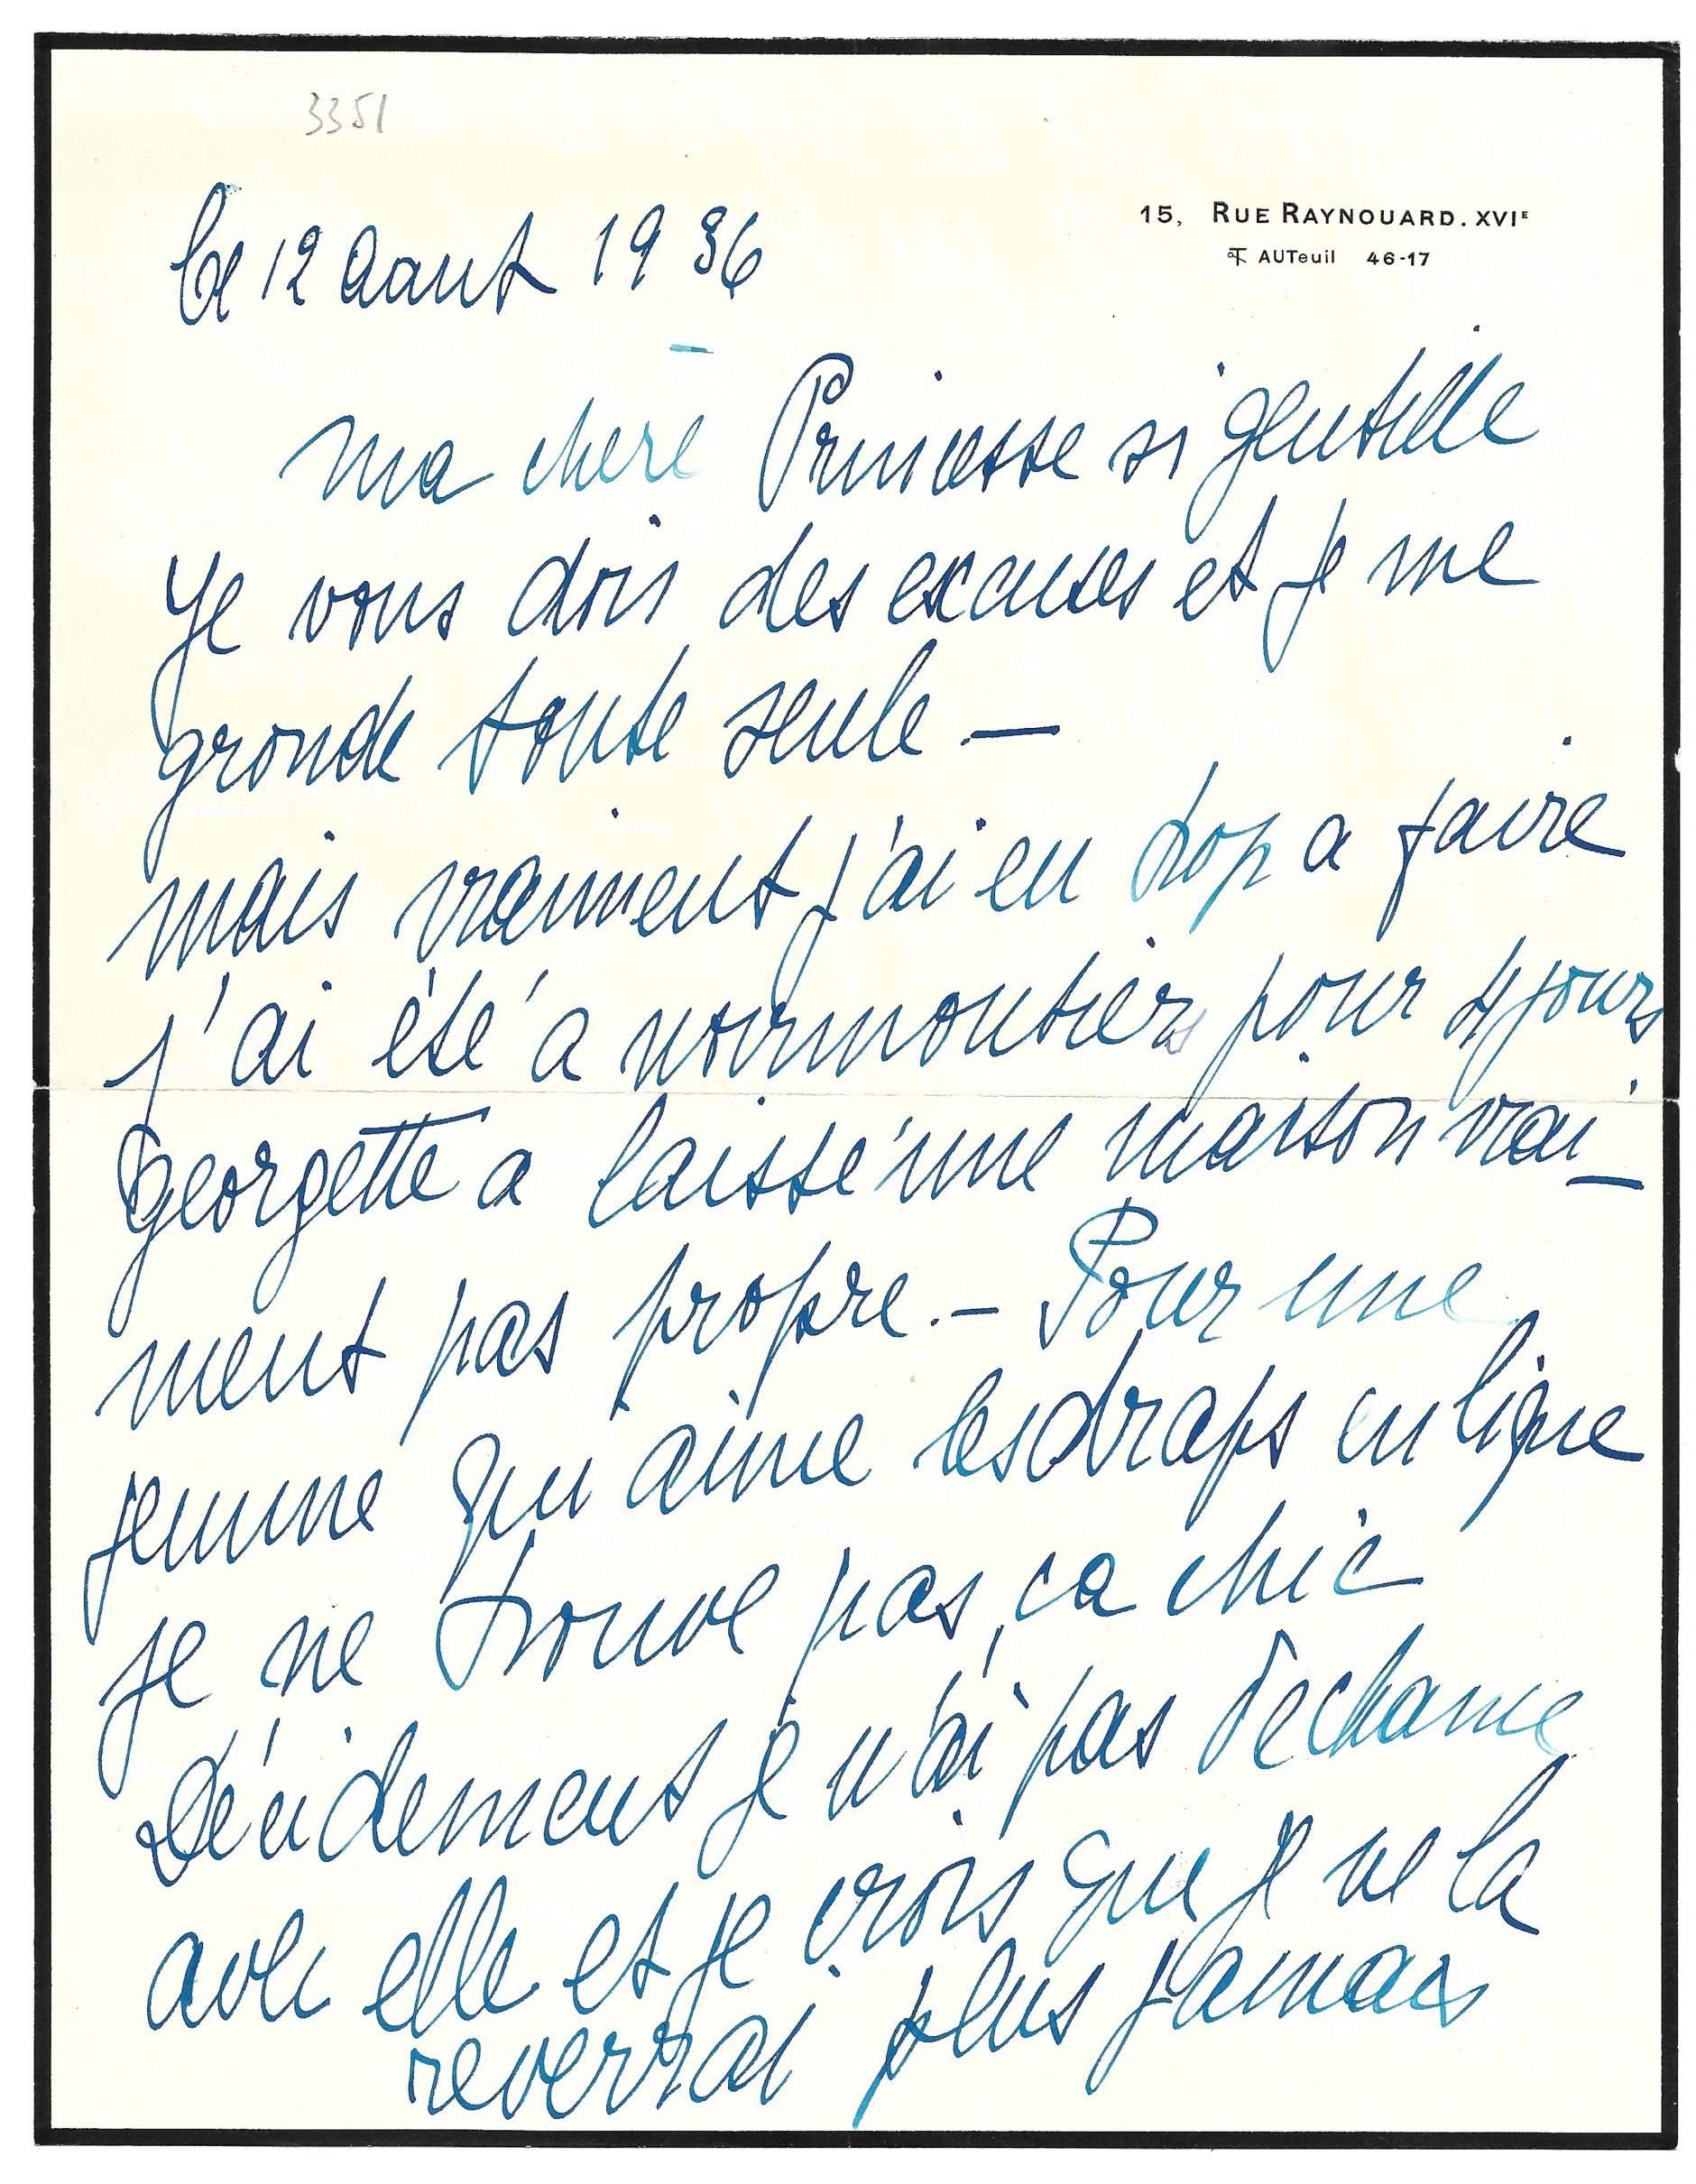 3351
15, RUE RAYNOUARD. XVIE
AUTeuil 46-17
le 12 Aout 1936
Ma chere Princesse si gentille
Je vous dois des excuses et je me
gronde toute seule —
mais vraiment j'ai eu trop a faire
j'ai été a noirmoutiers pour 4 jours
Georgette a laissé une maison vrai-
ment pas propre. — Pour une
femme qui aime les draps en ligne
je ne trouve pas ça chic
Décidement je n'ai pas de chance
avec elle et je crois que je ne la
reverrai plus jamais